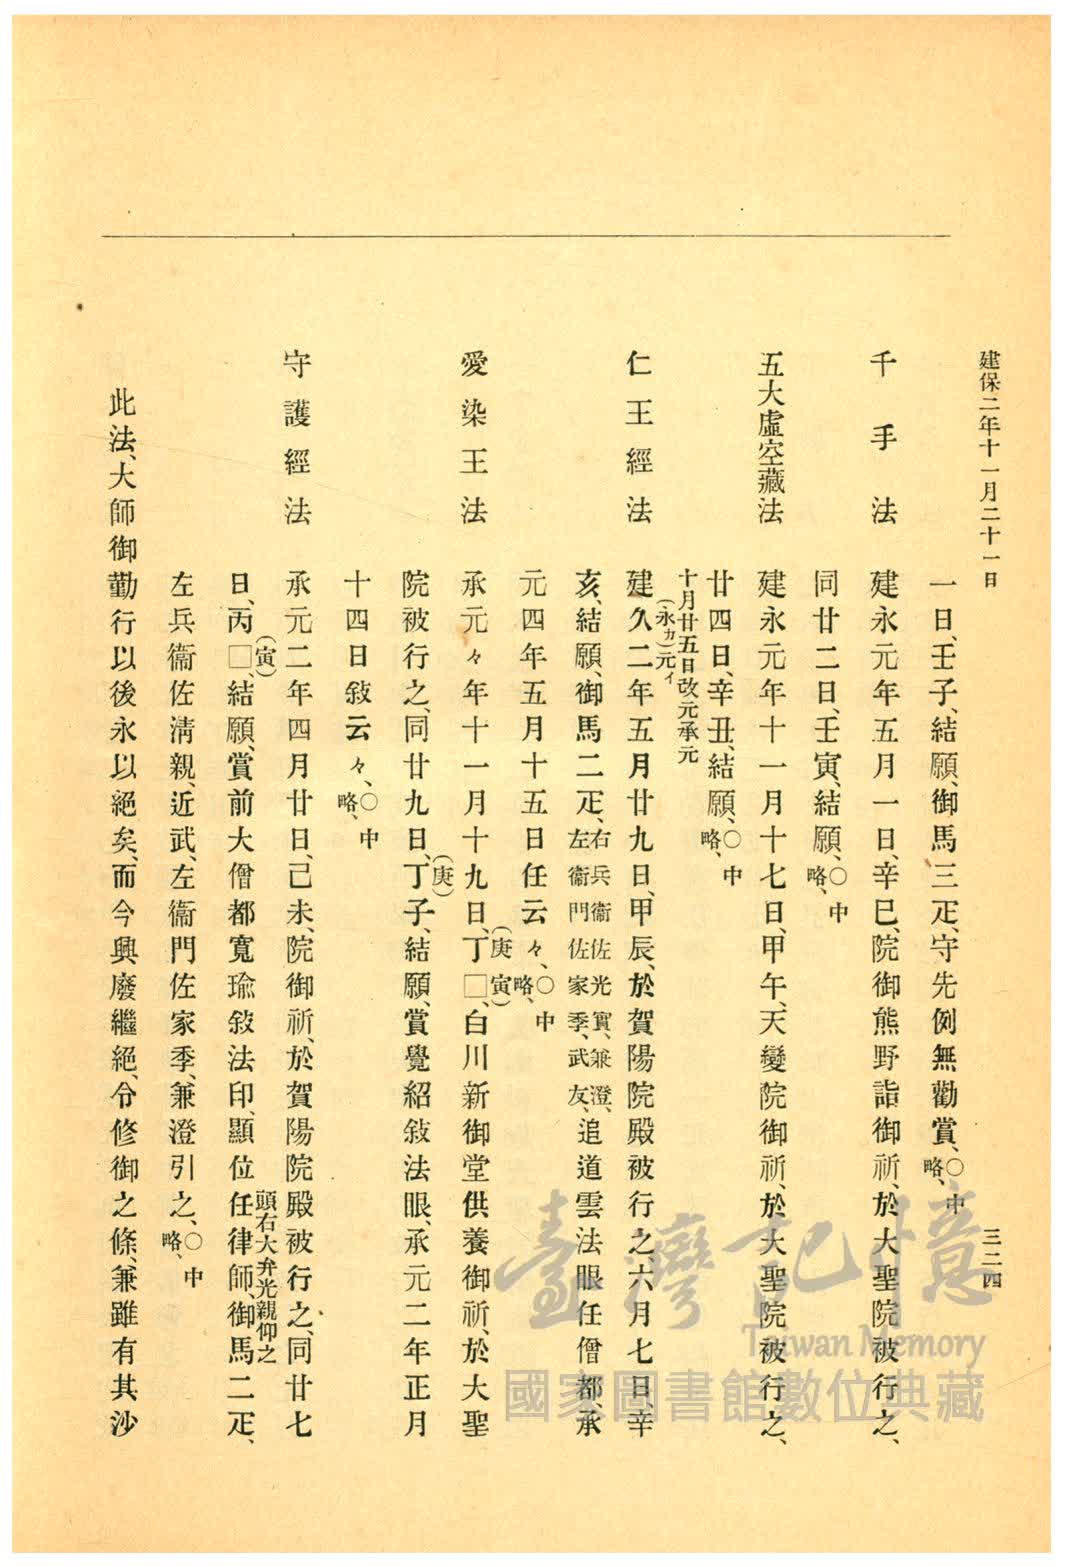 建保二年十一月二十一日
三二四
一日、壬子、結願、御馬三疋、守先例無勸賞、○中略、
千手法 建永元年五月一日、辛巳、院御熊野詣御祈、於大聖院被行之、
同廿二日、壬寅、結願、○中略、
五大虛空藏法 建永元年十一月十七日、甲午、天變院御祈、於大聖院被行之、
廿四日、辛丑、結願、○中略、
十月廿五日改元承元
仁王經法 建久(永カ)元イ二年五月廿九日、甲辰、於賀陽院殿被行之、六月七日、辛
亥、結願、御馬二疋、右兵衞佐光實、兼澄、左衞門佐家季、武友、追道雲法眼任僧都、承
元四年五月十五日任云々、○中略、
愛染王法 承元々年十一月十九日、丁(庚寅)□、白川新御堂供養御祈、於大聖
院被行之、同廿九日、丁(庚)子、結願、賞覺紹敍法眼、承元二年正月
十四日敍云々、○中略、
守護經法 承元二年四月廿日、己未、院御祈、於賀陽院殿被行之、同廿七
日、丙(寅)□、結願、賞前大僧都寬瑜敍法印、顯位任律師、頭右大弁光親仰之御馬二疋、
左兵衞佐淸親、近武、左衞門佐家季、兼澄引之、○中略、
此法、大師御勤行以後永以絕矣、而今興廢繼絕、令修御之條、兼雖有其沙
臺灣記憶
Taiwan Memory
國家圖書館數位典藏